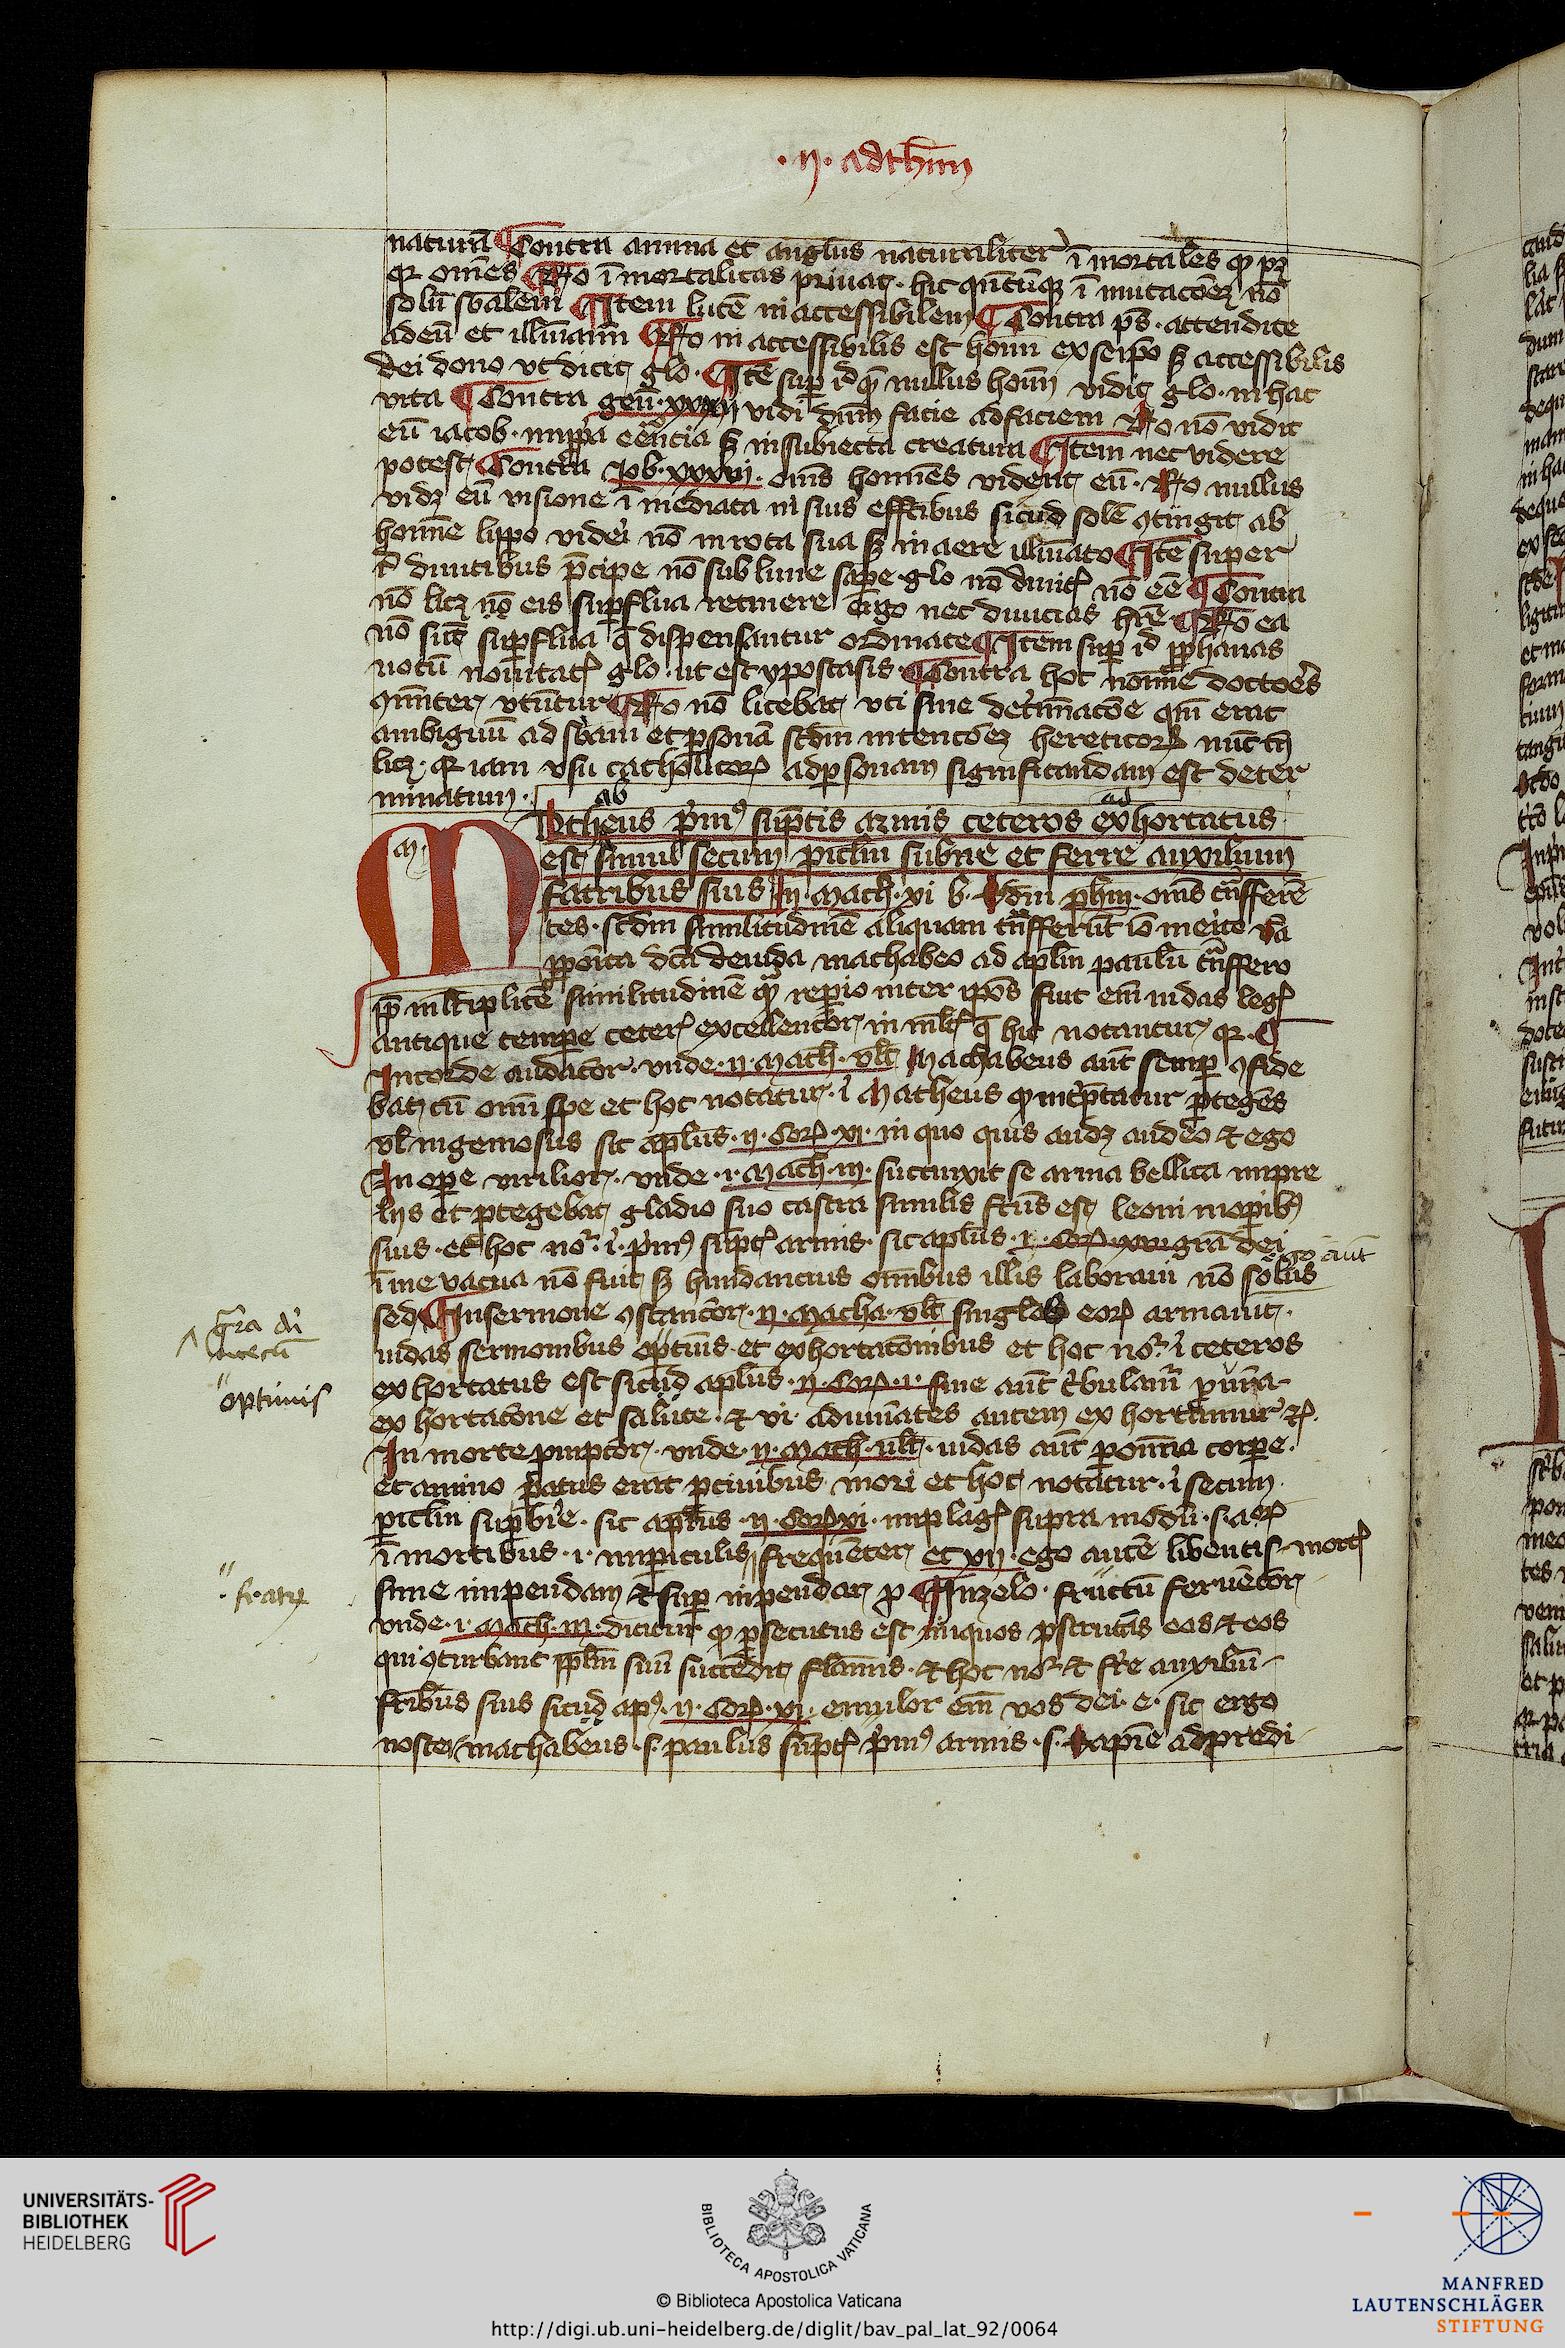 ·ij· ad thim̄
naturā Contra anima et angl̄us naturaliter īmortales ꝙ p̄ȝ
qꝛ om̄es Ro īmortalitas priuat · hic qn̄tūqȝ ī mutacōeȝ nō
solū sb̄alem̄ Item lucē inaccessibilem Contra ps̄ · attendite
adeū et illūiamī Ro inaccessibilis est hoīm exseip̄o sȝ accessibilis
dei dono vt dicit glo · Itē sup̄ id qd̄ nullus hoīm vidit glo · in hac
vita Contra gen̄ · xxxij vidi dūm facie adfaciem Ro nō vidit
eū iacob · in p̄pa eēncia sȝ insubiecta creatura Item nec videre
potest Contra Iob · xxxvi · om̄s homīes vident eū · Ro nullus
videȝ eū visione īmediata nī suis effc̄tibus sicud solē ꝯtingit ab
homīe lippo videri nō inrota sua sȝ inaere illūiato Itē super
id diuitibus p̄cipe nō sublime sape · glo nō diuitꝭ nō eē Contra
nō licȝ nō eis sup̄flua retinere ergo nec diuicias hr̄e Ro ea
nō sūt sup̄flua q̄ dispensantur ordinate Item sup̄ id p̄phanas
uocū nouitatꝭ glo · ut est ypostasis · Contra hoc nomīe doctoēs
ꝯmūnter utūtur Ro nō licebat vti sine det̄minacōe qm̄ erat
ambiguū ad sb̄am et p̄sonā scd̄m intencōeȝ hereticoꝝ nūc tn̄
licȝ · qꝛ iam vsu catholicoꝝ adp̄sonam significandam est deter
minatum ·
ab ad
Matheus p̄mꝰ sūptis armis ceteros exhortatus
est simul secum pic̄lm subire et ferre auxilium
fratribus suis ij · mach · xi b · Scd̄m ph̄m · om̄s tn̄sferē
tes · scd̄m similitudinē aliquam tn̄sferūt iō merito v̄ba
p̄poīta dc̄a deiuda machabeo ad apl̄m paulū tn̄sfero
ꝓp̄t ml̄tiplicē similitudinē quā reperio inter ip̄os fuit em̄ iudas legꝭ
antique tempe ceterꝭ excellencior in ml̄tꝭ q̄ hic notantur qꝛ ·
In corde audacior · vnde · ij · mach · vlt̄ Machabeus aūt semp̄ ꝯfide
bat cū om̄i spe et hoc notatur · ī Matheus ꝙ int̄p̄tatur p̄tegens
vl̄ ingeniosus sic apl̄us · ij · Corꝝ · xi · in quo quis audȝ audeo ⁊ ego
In ope virilior · vnde · i · Mach · iij · succinxit se arma bellica in pre
lijs et p̄tegebat gladio suo castra similis fc̄us est leoni inoperibꝰ
suis · et hoc noꝛ · ī · p̄mꝰ sūptꝭ armis · sic apl̄us · i · Corꝝ · xv · grā dei
ego aūt
ī me vacua nō fuit sȝ habundancius om̄ibus illis laboraui nō solus
sed Insermone ꝯstancior · ij · Macha · vlt̄ singlos eoꝝ armauit ·
grā dei
mecū
iudas sermonibus optimis · et exhortacōnibus et hoc noꝛ ī ceteros
optimis
exhortatus est sicud apl̄us · ij · Corꝝ · i · siue aūt t̄bulam̄ p̄ ūr̄a
exhortacōne et salute · ⁊ vi · adiuuātes autem exhortamur ⁊c̄ ·
In morte pmptior · vnde · ij · Mach · ult̄ · iudas aūt p̄ om̄ia corpe ·
et animo p̄atus erat pciuibus mori et hoc notatur · ī secum
pic̄lm subire · sic apl̄us · ij · Corꝝ xi · inplagꝭ supra modū · s · aeꝝ
ī mortibus · i · inpiculis frequēter et xij · ego autē libentis · mortꝭ
sime impendam ⁊ sup̄ inpendar p̄ Inzelo · fructū feruēcior
· fratꝝ
vnde · i · Mach · iij · dicitur ꝙ p̄secutus est iniquos pscrutās eos ⁊ eos
qui ꝯturbant ppl̄m suū succēdit flāmis · ⁊ hoc noꝛ ⁊ fr̄e auxiliū
fr̄ibus suis sicud apꝰ · ij · Corꝝ · xi · emulor em̄ vos dei · e · sic ergo
noster machabeus · s · paulus sūptꝭ p̄mꝰ armis · s · sapiē adpredi
UNIVERSITÄTS-
BIBLIOTHEK
HEIDELBERG
BIBLIOTECA APOSTOLICA VATICANA
© Biblioteca Apostolica Vaticana
http://digi.ub.uni-heidelberg.de/diglit/bav_pal_lat_92/0064
MANFRED
LAUTENSCHLÄGER
STIFTUNG